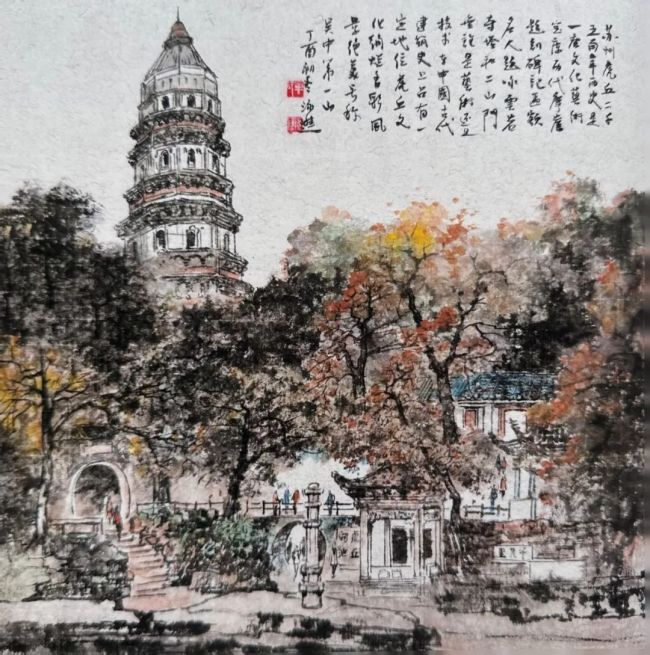 苏州虎丘二千
五百年历史是
一座文化艺术
宝库历代摩崖
题刻碑记匾额
名人题咏云岩
寺塔和二山门
无论是艺术还是
技术在中国古代
建筑史上占有一
定地位虎丘文
化绚烂多彩风
景绝美号称
吴中第一山
丁酉